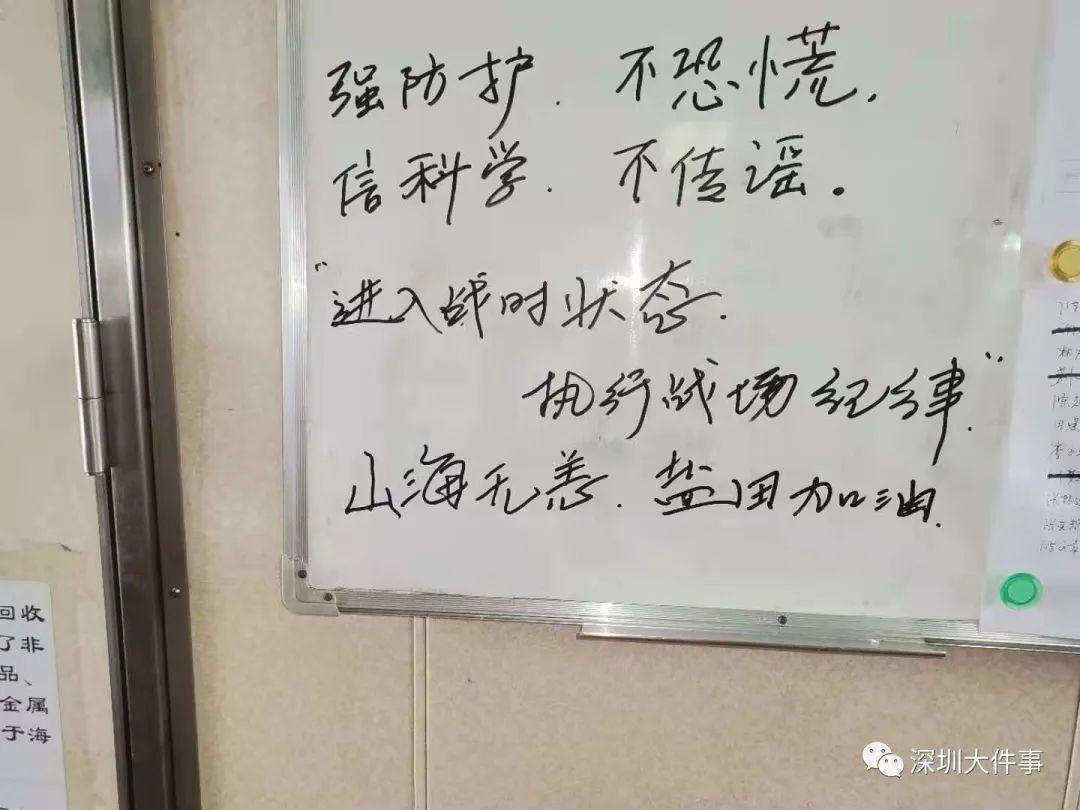 强防护.不恐慌,
信科学.不传谣。
“进入战时状态.
执行战场纪律.”
山海无恙.盐田加油.
回收
了非
品、
金属
于海
深圳大件事